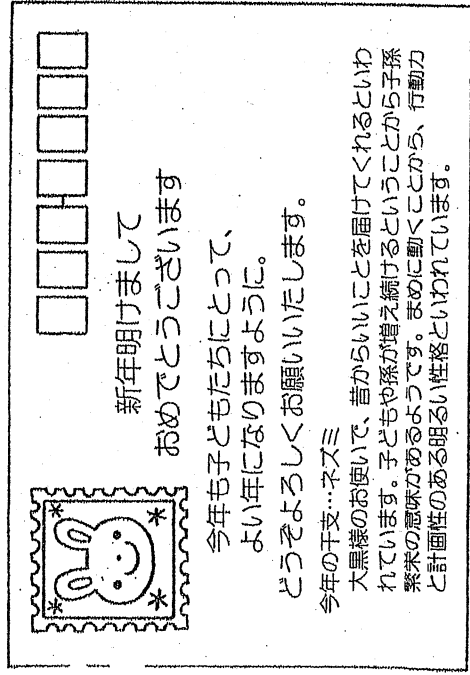 新年明けまして
おめでとうございます
今年も子どもたちにとって、
よい年になりますように。
どうぞよろしくお願いいたします。
今年の干支…ネズミ
大黒様のお使いで、昔からいいことを届けてくれるといわ
れています。子どもや孫が増え続けるということから子孫
繁栄の意味があるようです。まめに動くことから、行動力
と計画性のある明るい性格といわれています。